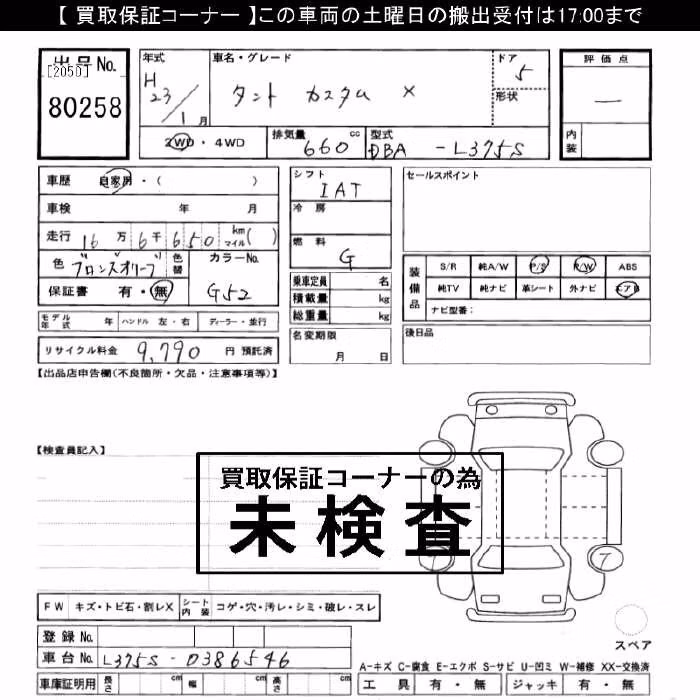 【 買取保証コーナー 】この車両の土曜日の搬出受付は17:00まで
出品No.
[2050]
80258
年式
H
23/1月
車名・グレード
タント カスタム X
ドア
5
形状
2WD・4WD
排気量
660 cc
型式
DBA-L375S
評価点
―
内装
車歴 自家用・( )
車検 年 月
走行 16万6千650 km マイル( )
色 ブロンズオリーブ 色替
カラーNo.
G52
保証書 有・無
モデル年式 年 ハンドル 左・右 ディーラー・並行
リサイクル料金 9,790 円 預託済
シフト
IAT
冷房
燃料
G
乗車定員 名
積載量 kg
総重量 kg
名変期限
月 日
セールスポイント
装備品
S/R 純A/W P/S R/W ABS
純TV 純ナビ 革シート 外ナビ エアB
ナビ型番：
後日品
【出品店申告欄(不良箇所・欠品・注意事項等)】
【検査員記入】
買取保証コーナーの為
未検査
7 7
FW キズ・トビ石・割レX シート内装 コゲ・穴・汚レ・シミ・破レ・スレ
スペア
登録No.
車台No. L375S-0386546
車庫証明用 長さ cm 幅 cm 高さ cm
A-キズ C-腐食 E-エクボ S-サビ U-凹ミ W-補修 XX-交換済
工具 有・無 ジャッキ 有・無